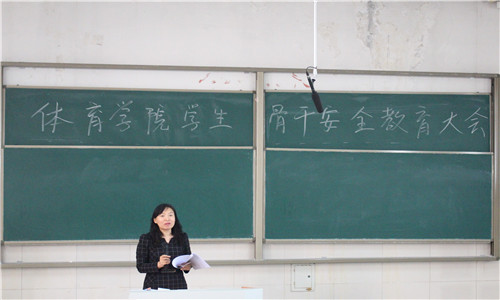 体育学院学生骨干安全教育大会